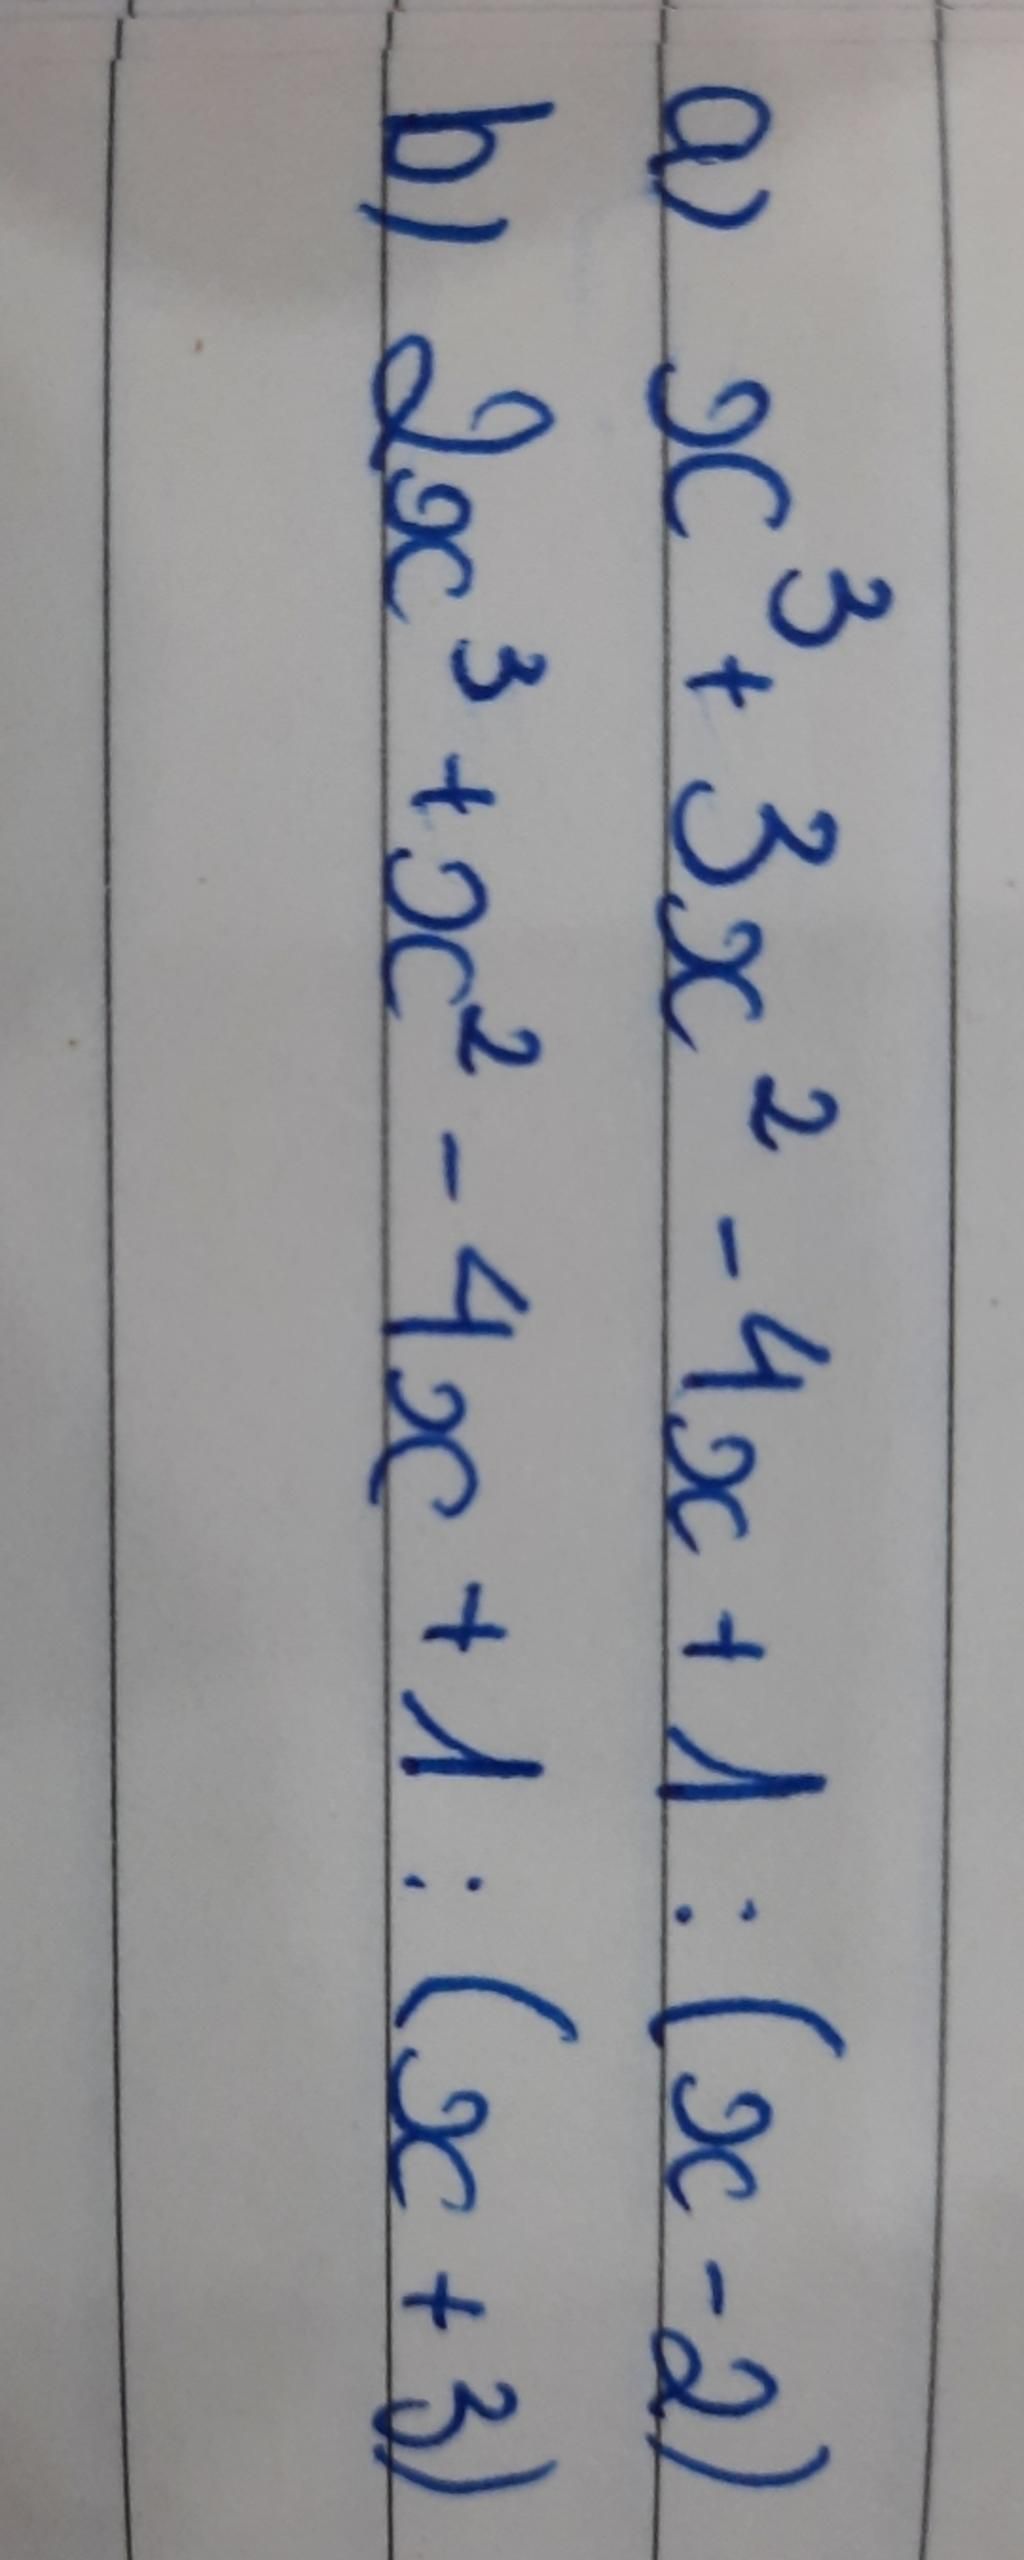 a) x³ + 3x² - 4x + 1 : (x - 2)
b) 2x³ + x² - 4x + 1 : (x + 3)